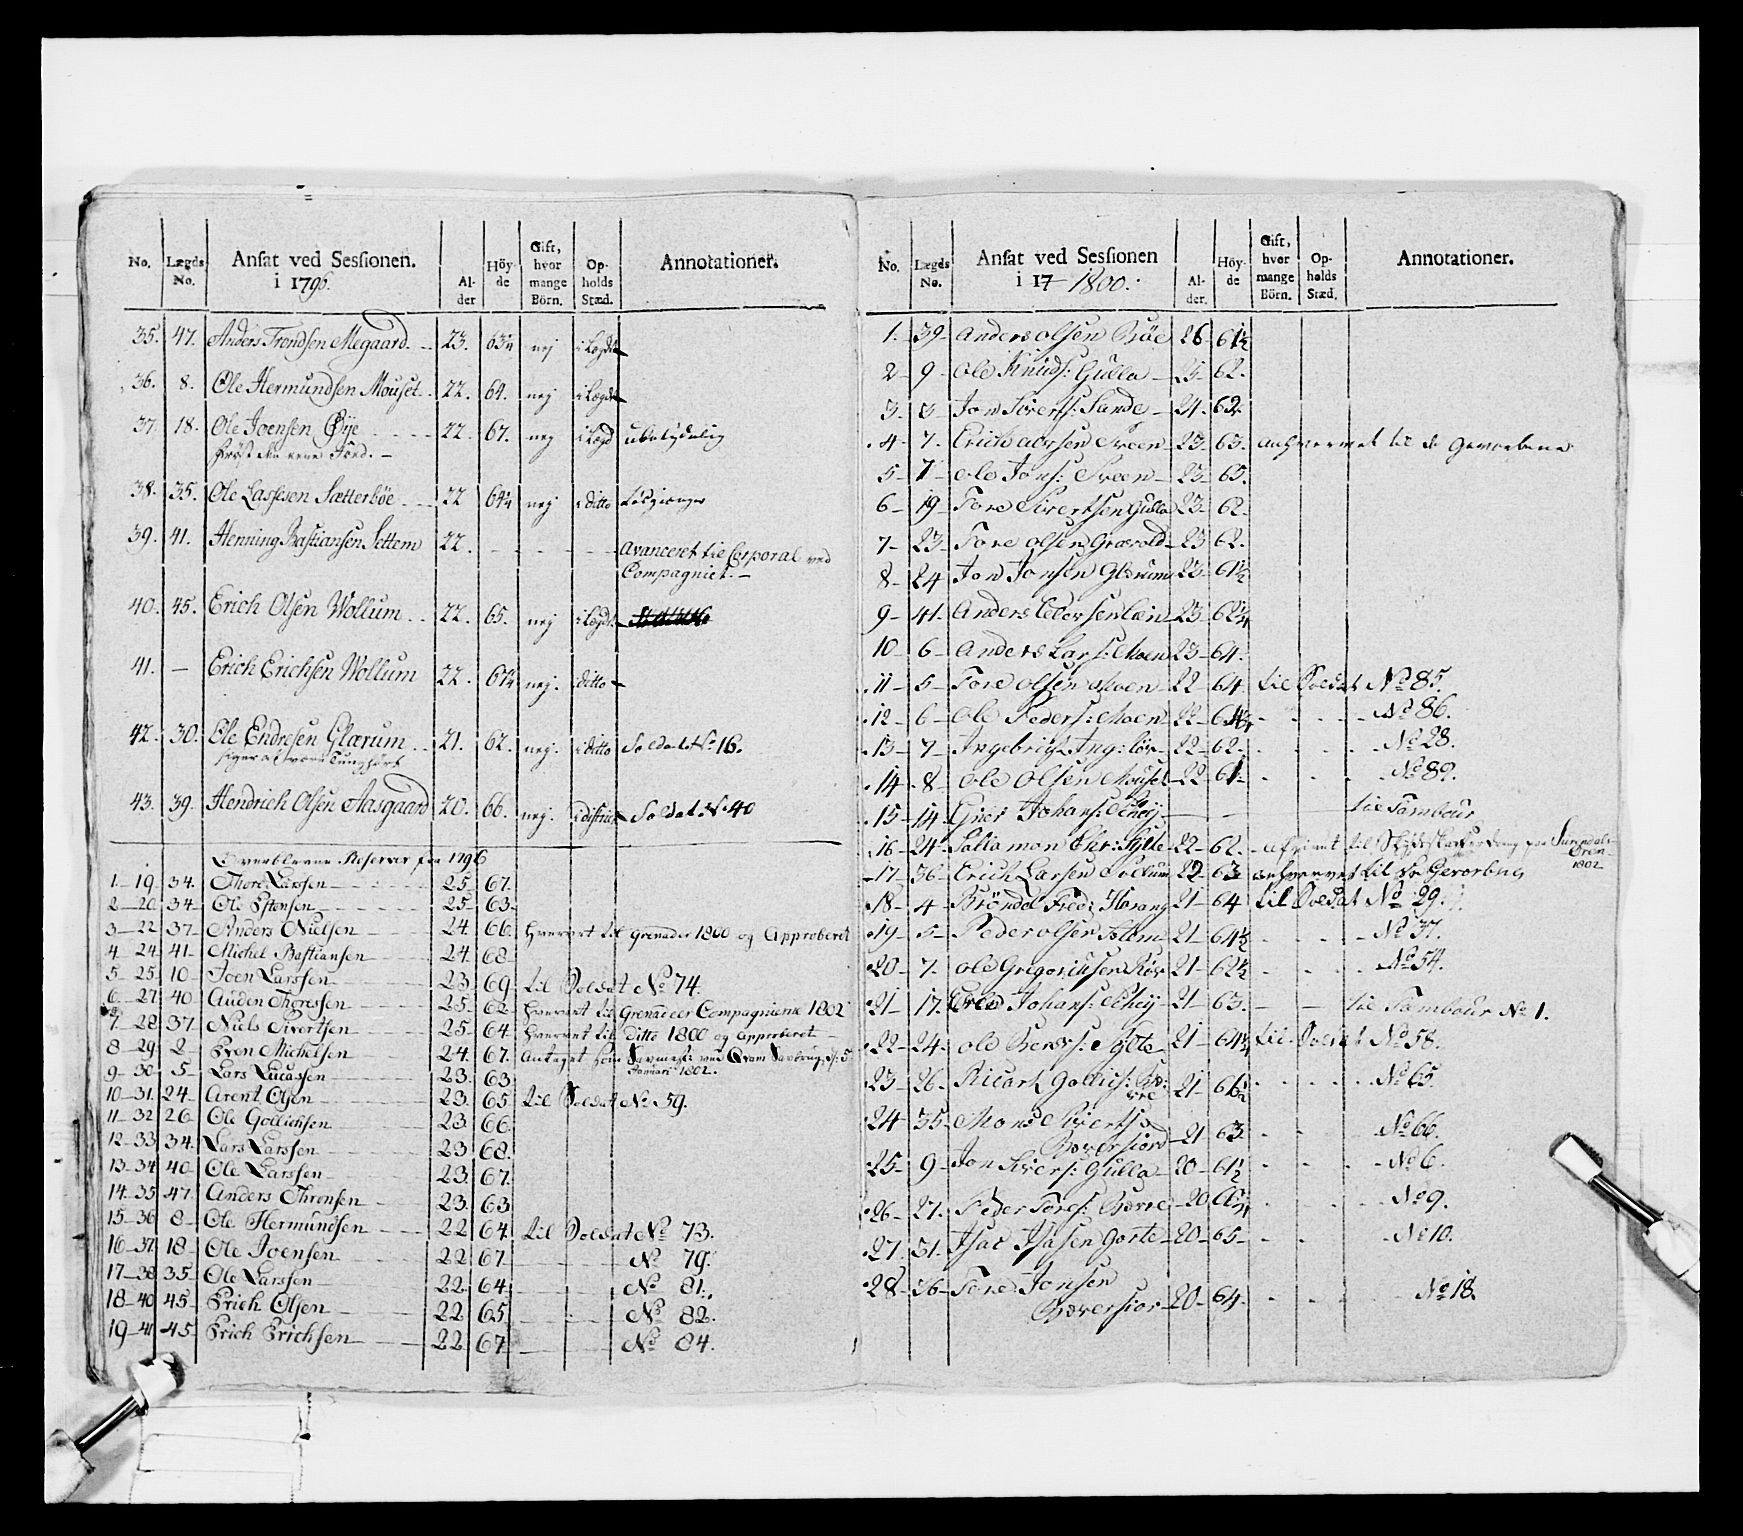 No. Lægds No. Ansat ved Sessionen. i 1796. Alder Höyde Gift, hvor mange Börn. Opholds Stæd. Annotationer.
35. 47. Anders Trondsen Megaard 23. 63¼ nej i Lægdet
36. 8. Ole Hermundsen Mouset 22. 64. nej i Lægdet
37 18. Ole Joensen Øye 22. 67. nej i Lægd ubetydelig
38. 35. Ole Lassesen Sætterböe 22 64¼ nej i ditto Løsgienger
39. 41. Henning Bastiansen Settem 22. Avanceret til Corporal ved
Compagniet.
40. 45. Erich Olsen Wollum 22. 65. nej i Lægdet
41. — Erich Erichsen Wollum 22. 67¼ nej. i ditto
42. 30. Ole Endresen Glærum 21. 62. nej. i ditto Soldat No 16.
43. 39. Hendrich Olsen Aasgaard 20. 66. nej. i district Soldat No 40
Overblevne Reserver fra 1796
1 — 19. 34. Thore Larssen 25 67.
2 — 20 34 Ole Estensen 25 63
3 — 22 37. Anders Nielsen 24 66. Hververt til Grenader 1800 og Approberet
4 — 24 41 Michel Bastiansen 24 68
5 — 25. 10 Joen Larssen 23 69 til Soldat No 74.
6 — 27 40 Auden Thoressen 25. 62 Hververt til Grenadeer Compagnierne 1802
7 — 28 37. Niels Sivertsen 25 64. Hververt til ditto 1800 og approberet
8 — 29 2 Even Michelsen 24. 67. Antaget som
Januari 1802.
9 — 30 5 Lars Lucassen 23. 63
10 — 31. 24 Arent Olsen 23. 65 til Soldat No 59.
11 — 32 26 Ole Gollichsen 23 66.
12 — 33 34. Lars Larssen 23 68.
13 — 34 40 Ole Larssen 23. 67.
14 — 35 47 Anders Thronsen 23. 63
15 — 36 8 Ole Hermundsen 22 64. til Soldat No 73.
16 — 37. 18 Ole Joensen 22 67 No 79.
17 — 38 35 Ole Larssen 22. 64. No 81.
18 — 40 45 Erich Olsen 22 65. No 82.
19 — 41 45 Erich Erichsen 22 67 No 84.
No. Lægds No. Ansat ved Sessionen i 17 — 1800. Alder. Höyde Gift, hvor mange Börn. Opholds Stæd. Annotationer.
1. 39 Anders Olsen Böe 26 61½
2 9 Ole Knuds: Gulla 25 62.
3 3 Jon Siverts: Sande 24. 62.
4 7. Erich Sveen 23 63. anhvervet til de Gevorbene
5 7 Ole Jons: Sveen 23 65.
6 19 Tore Sivertsen Gulla 23 62
7 23 Tore Olsen Grævold 23 62.
8 24 Jon Jonsen Glærum 23 61½
9 41. Anders Pedersen 23 62¼
10 6 Anders Lars: Moen 23 64.
11 5 Tore Olsen Moen 22 64 til Soldat No 85.
12 6 Ole Peders: Moen 22 No 86.
13 7 Ingebrigt Ing: 22 62. No 28.
14 8 Ole Olsen Mouset 22 61 No 89.
15 14 Johans: til Tambour
16 24 Sallamon Chr: Sylte 22 62. Surendals
Øren
1802
17 36 Erich Larsen 22 63 anhvervet til de Gevorbne
18 4 Brönde Fred: Harang 21 64 til Soldat No 29.
19 5 Peder Olsen 21 64½ No 37.
20 7. Ole Gregoriusen 21 62½ No 54.
21 17. Johans: 21 63. til Tambour No 1.
22 24. Ole Bernts: Sylte 21 64¼ til Soldat No 58.
23 26. Ricart Gollics: 21 61½ No 65.
24 35 Mons Sivertsö
Bæversiord 21 63. No 66.
25 9 Jon Sivers: Gulla 20 61½ No 6.
26 27. Peder Tores: Bævre 20 No 9.
27. 31. Isac Isasen Gorte 20 65 No 10.
28 36 Tore Jonsen
Bæversior 20 64. No 18.